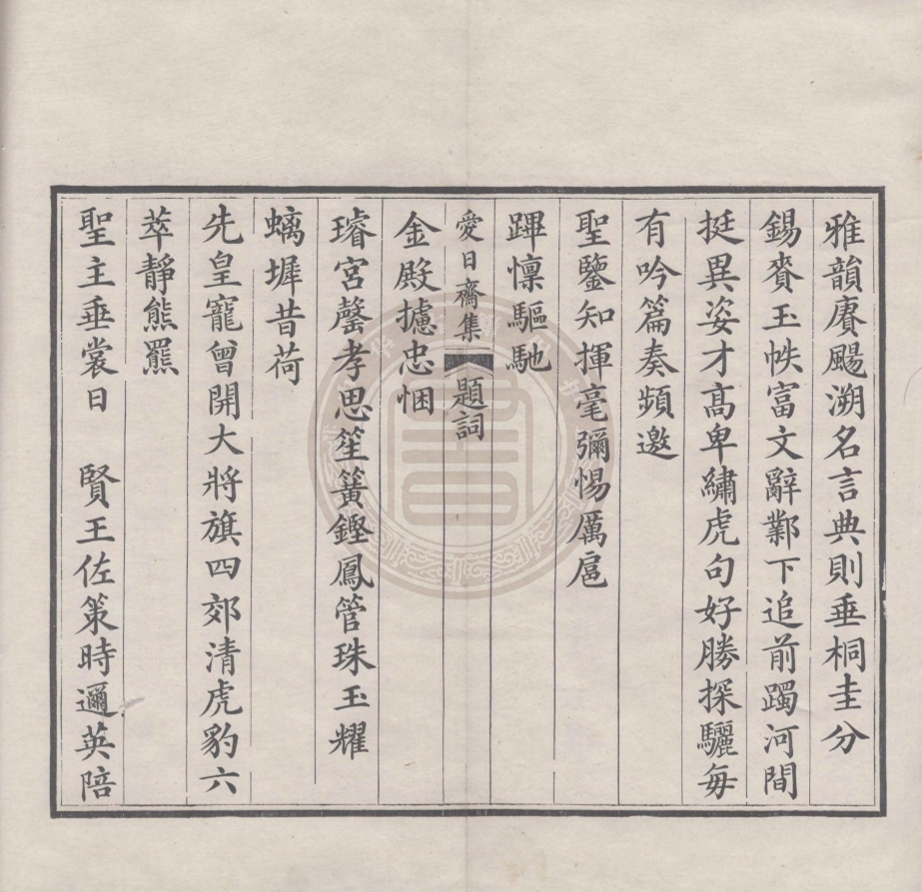 雅韻賡颺溯名言典則垂桐圭分
錫賚玉帙富文辭鄴下追前躅河間
挺異姿才高卑繡虎句好勝探驪每
有吟篇奏頻邀
聖鑒知揮毫彌惕厲扈
蹕懍驅馳
愛日齋集 題詞
金殿攄忠悃
璿宮罄孝思笙簧鏗鳳管珠玉耀
螭墀昔荷
先皇寵曾開大將旗四郊清虎豹六
萃靜熊羆
聖主垂裳日 賢王佐策時邇英陪